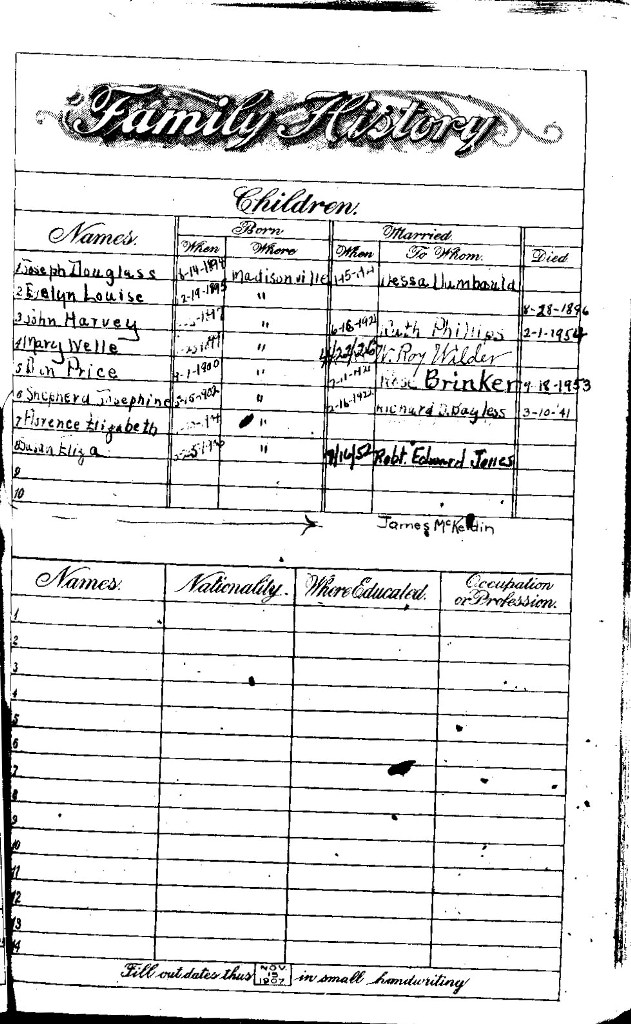 Family History
Children.
Names. Born Married Died
When Where When To Whom.
1 Joseph Douglass Madisonville
2 Evelyn Louise 2-19-1895 " 8-28-1896
3 John Harvey " 6-18-1921 Ruth Phillips 2-1-1954
4 Mary Welle " 4/22/26 W. Roy Wilder
5 Price 9-1-1900 " Rose Brinker 9-18-1953
6 Shepherd Josephine 5-15-1902 " 2-16-1922 Richard Bayless 3-10-'41
7 Florence Elizabeth "
8 Susan Eliza " 9/16/52 Robt. Edward Jones
9
10
James McKeldin
Names. Nationality. Where Educated. Occupation or Profession.
1
2
3
4
5
6
7
8
9
10
11
12
13
14
Fill out dates thus NOV 15 1907 in small handwriting